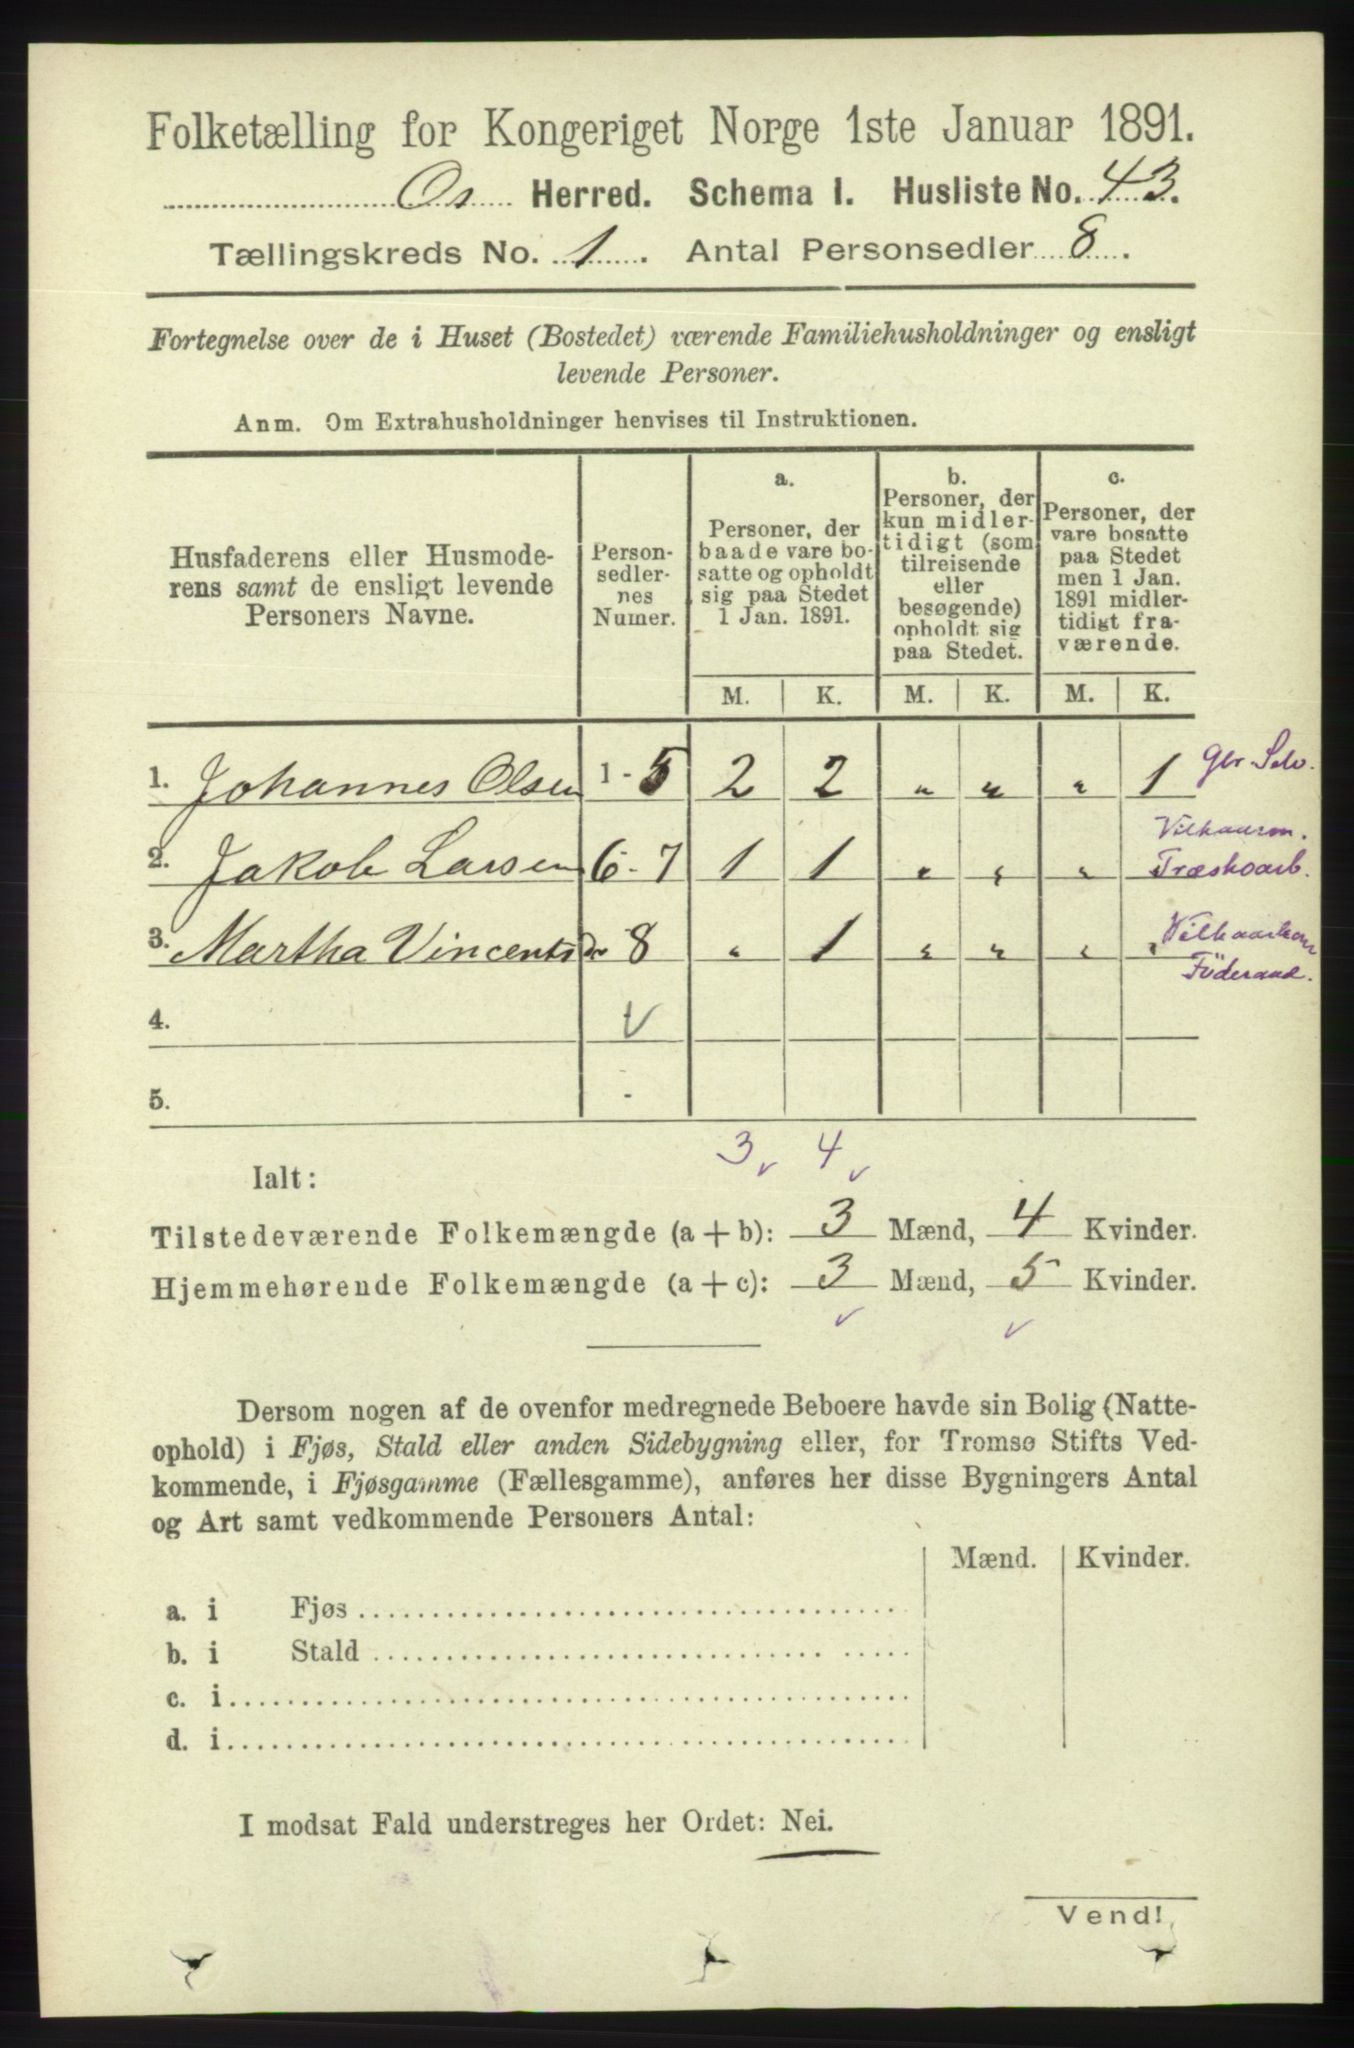 Folketælling for Kongeriget Norge 1ste Januar 1891.
Os Herred. Schema I. Husliste No. 43.
Tællingskreds No. 1. Antal Personsedler 8.
Fortegnelse over de i Huset (Bostedet) værende Familiehusholdninger og ensligt
levende Personer.
Anm. Om Extrahusholdninger henvises til Instruktionen.
Husfaderens eller Husmode-
rens samt de ensligt levende
Personers Navne.
Person-
sedler-
nes
Numer.
a.
Personer, der
baade vare bo-
satte og opholdt
sig paa Stedet
1 Jan. 1891.
b.
Personer, der
kun midler-
tidigt (som
tilreisende
eller
besøgende)
opholdt sig
paa Stedet.
c.
Personer, der
vare bosatte
paa Stedet
men 1 Jan.
1891 midler-
tidigt fra-
værende.
M. K. M. K. M. K.
1. Johannes Olsen 1 - 5 2 2 „ „ „ 1 Gbr. Selv.
Vilkaarsm.
2. Jakob Larsen 6 - 7 1 1 „ „ „ „ Træskoarb.
3. Martha Vincentsdr 8 „ 1 „ „ „ „
Föderaad.
4.
5. -
3 4
Ialt:
Tilstedeværende Folkemængde (a + b): 3 Mænd, 4 Kvinder.
Hjemmehørende Folkemængde (a + c): 3 Mænd, 5 Kvinder.
Dersom nogen af de ovenfor medregnede Beboere havde sin Bolig (Natte-
ophold) i Fjøs, Stald eller anden Sidebygning eller, for Tromsø Stifts Ved-
kommende, i Fjøsgamme (Fællesgamme), anføres her disse Bygningers Antal
og Art samt vedkommende Personers Antal:
Mænd. Kvinder.
a. i Fjøs
b. i Stald
c. i
d. i
I modsat Fald understreges her Ordet: Nei.
Vend!